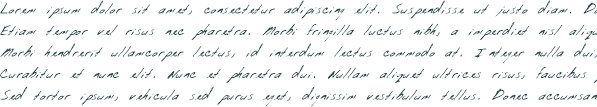 Lorem ipsum dolor sit amet, consectetur adipiscing elit. Suspendisse ut justo diam. D
Etiam tempor vel risus nec pharetra. Morbi fringilla luctus nibh, a imperdiet nisl aliqu
Morbi hendrerit ullamcorper lectus, id interdum lectus commodo at. Integer nulla dui,
Curabitur et nunc elit. Nunc et pharetra dui. Nullam aliquet ultrices risus, faucibus
Sed tortor ipsum, vehicula sed purus eget, dignissim vestibulum tellus. Donec accumsan